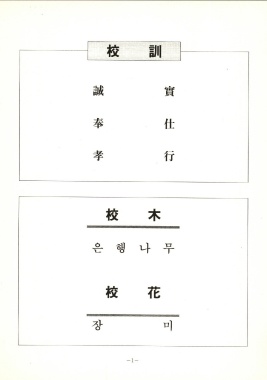 校 訓
誠 實
奉 仕
孝 行
校 木
은 행 나 무
校 花
장 미
－1－